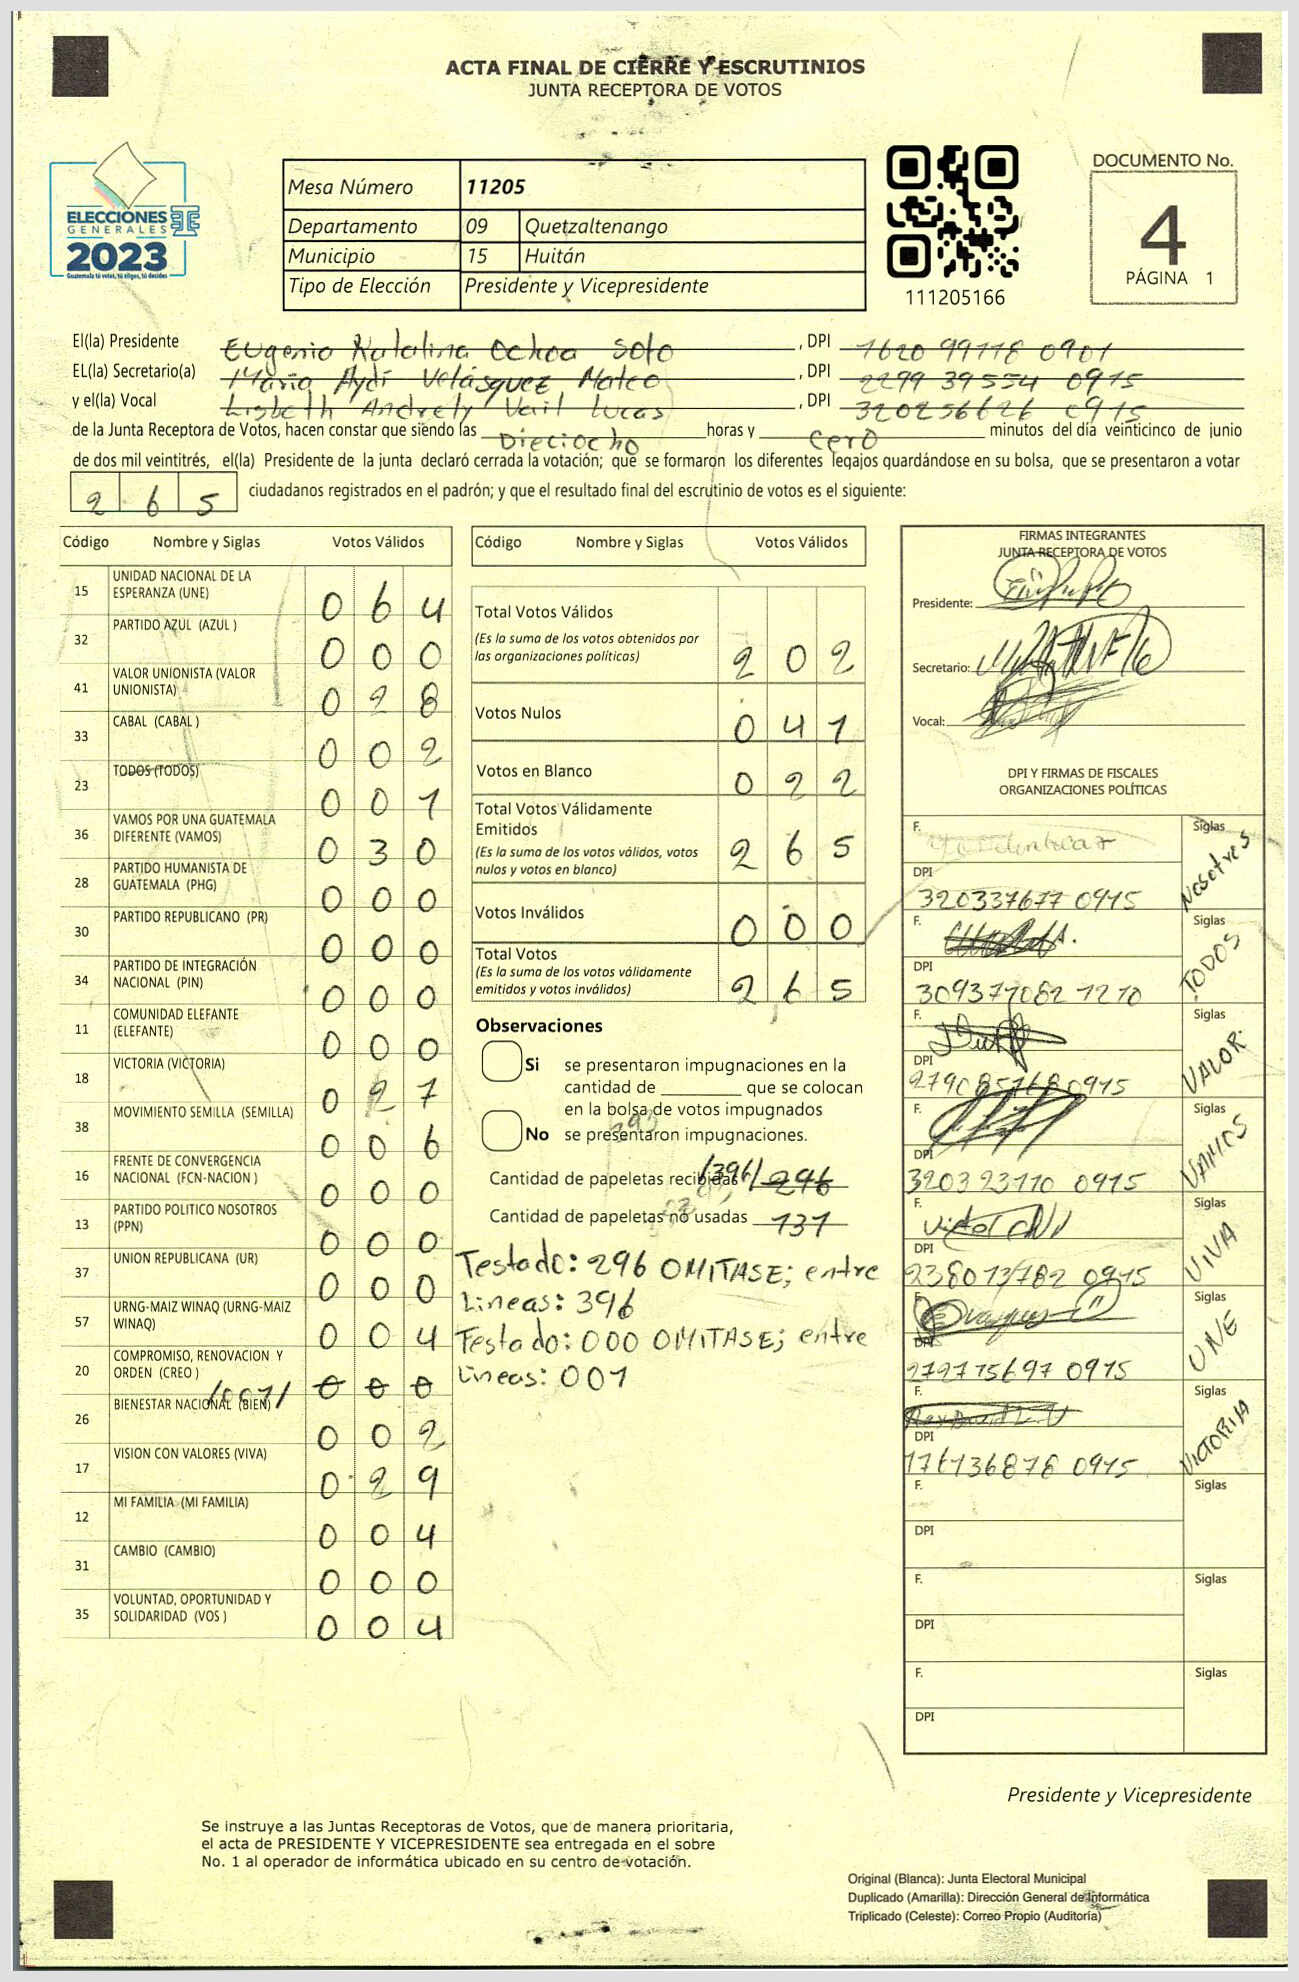 ACTA FINAL DE CIERRE Y ESCRUTINIOS
JUNTA RECEPTORA DE VOTOS
ELECCIONES
GENERALES
2023
Guatemala tú votas, tú eliges, tú decides
Mesa Número 11205
Departamento 09 Quetzaltenango
Municipio 15 Huitán
Tipo de Elección Presidente y Vicepresidente
111205166
DOCUMENTO No.
4
PÁGINA 1
El(la) Presidente Eugenia Katalina Ochoa Soto , DPI 1620 99118 0901
EL(la) Secretario(a) María Aydí Velásquez Mateo , DPI 2299 39554 0915
y el(la) Vocal Lisbeth Andrely Vail Lucas , DPI 320256626 0915
de la Junta Receptora de Votos, hacen constar que siendo las Dieciocho horas y cero minutos del día veinticinco de junio
de dos mil veintitrés, el(la) Presidente de la junta declaró cerrada la votación; que se formaron los diferentes legajos quardándose en su bolsa, que se presentaron a votar
265 ciudadanos registrados en el padrón; y que el resultado final del escrutinio de votos es el siguiente:
Código Nombre y Siglas Votos Válidos
15 UNIDAD NACIONAL DE LA ESPERANZA (UNE) 064
32 PARTIDO AZUL (AZUL ) 000
41 VALOR UNIONISTA (VALOR UNIONISTA) 028
33 CABAL (CABAL ) 002
23 TODOS (TODOS) 001
36 VAMOS POR UNA GUATEMALA DIFERENTE (VAMOS) 030
28 PARTIDO HUMANISTA DE GUATEMALA (PHG) 000
30 PARTIDO REPUBLICANO (PR) 000
34 PARTIDO DE INTEGRACIÓN NACIONAL (PIN) 000
11 COMUNIDAD ELEFANTE (ELEFANTE) 000
18 VICTORIA (VICTORIA) 027
38 MOVIMIENTO SEMILLA (SEMILLA) 006
16 FRENTE DE CONVERGENCIA NACIONAL (FCN-NACION ) 000
13 PARTIDO POLITICO NOSOTROS (PPN) 000
37 UNION REPUBLICANA (UR) 000
57 URNG-MAIZ WINAQ (URNG-MAIZ WINAQ) 004
20 COMPROMISO, RENOVACION Y ORDEN (CREO ) /001/ 000
26 BIENESTAR NACIONAL (BIEN) 002
17 VISION CON VALORES (VIVA) 029
12 MI FAMILIA (MI FAMILIA) 004
31 CAMBIO (CAMBIO) 000
35 VOLUNTAD, OPORTUNIDAD Y SOLIDARIDAD (VOS ) 004
Código Nombre y Siglas Votos Válidos
Total Votos Válidos 202
(Es la suma de los votos obtenidos por
las organizaciones políticas)
Votos Nulos 041
Votos en Blanco 022
Total Votos Válidamente
Emitidos 265
(Es la suma de los votos válidos, votos
nulos y votos en blanco)
Votos Inválidos 000
Total Votos 265
(Es la suma de los votos válidamente
emitidos y votos inválidos)
Observaciones
Si se presentaron impugnaciones en la
cantidad de que se colocan
en la bolsa de votos impugnados
No se presentaron impugnaciones.
Cantidad de papeletas recibidas /396/ 296
Cantidad de papeletas no usadas 131
Testado: 296 OMITASE; entre
Lineas: 396
Testado: 000 OMITASE; entre
Lineas: 001
FIRMAS INTEGRANTES
JUNTA RECEPTORA DE VOTOS
Presidente:
Secretario:
Vocal:
DPI Y FIRMAS DE FISCALES
ORGANIZACIONES POLÍTICAS
F. Siglas Nosotros
DPI 320337677 0915
F. Siglas TODOS
DPI 309377082 1210
F. Siglas VALOR
DPI 279085768 0915
F. Siglas VAMOS
DPI 320323110 0915
F. Siglas VIVA
DPI 238013782 0915
F. Siglas UNE
DPI 272775697 0915
F. Siglas VICTORIA
DPI 176136878 0915
F. Siglas
DPI
F. Siglas
DPI
F. Siglas
DPI
Presidente y Vicepresidente
Se instruye a las Juntas Receptoras de Votos, que de manera prioritaria,
el acta de PRESIDENTE Y VICEPRESIDENTE sea entregada en el sobre
No. 1 al operador de informática ubicado en su centro de votación.
Original (Blanca): Junta Electoral Municipal
Duplicado (Amarilla): Dirección General de Informática
Triplicado (Celeste): Correo Propio (Auditoría)